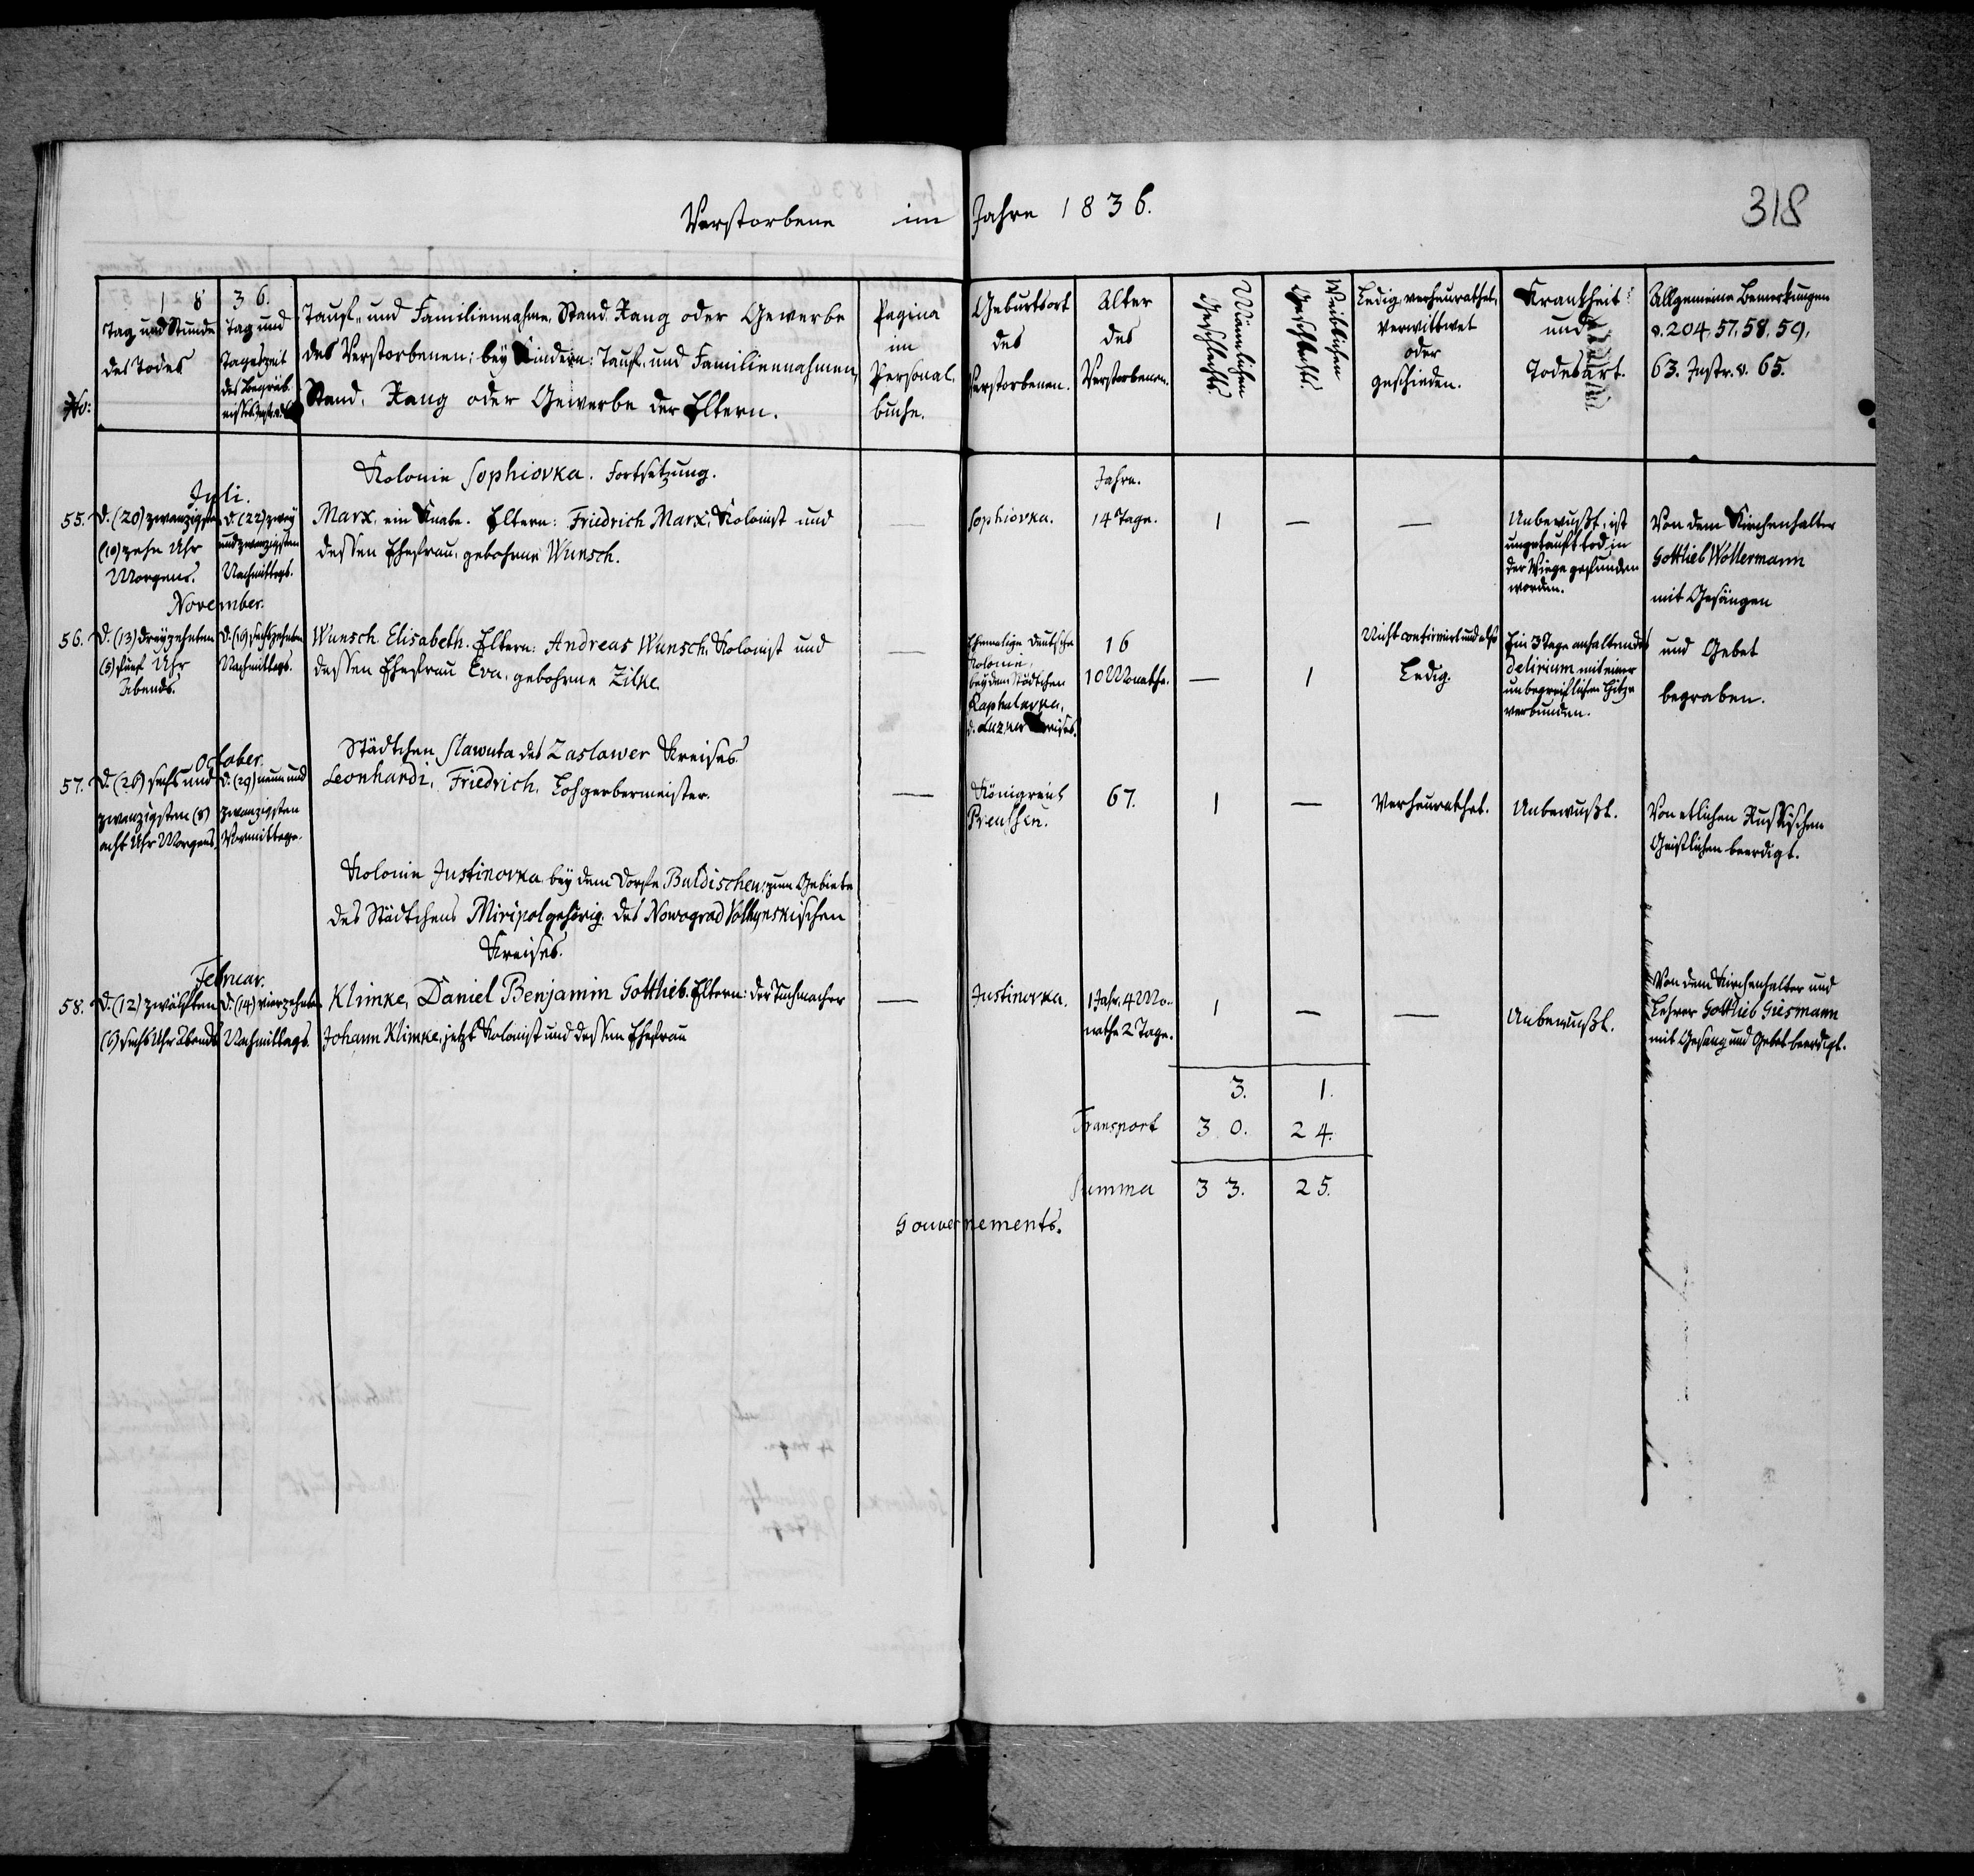 Verstorbene im Jahre 1836.
318
No:
18
Tag und Stunde
des Todes
36.
Tag und
Tageszeit
des Begräb-
nisses
Tauf- und Familiennahme, Stand, Rang oder Gewerbe
des Verstorbenen; bey Kindern: Tauf- und Familiennahmen,
Stand, Rang oder Gewerbe der Eltern.
Pagina
im
Personal-
buche.
Geburtsort
des
Verstorbenen.
Alter
des
Verstorbenen.
Männlichen
Geschlechts.
Weiblichen
Geschlechts.
Ledig, verheurathet,
verwittwet
oder
geschieden.
Krankheit
und
Todesart.
Allgemeine Bemerkungen
v. 204, 57, 58, 59,
63. Instr. v. 65.
Kolonie Sophiovka. Fortsetzung.
Jahre.
Juli.
55.
d. (20) zwanzigsten
(10) zehn Uhr
Morgens.
d. (22) zwey
und zwanzigsten
Nachmittags.
Marx, ein Knabe. Eltern: Friedrich Marx, Kolonist und
dessen Ehefrau, gebohrne Wunsch.
—
Sophiovka.
14 Tage.
1
—
—
Unbewußt, ist
ungetauft tod in
der Wiege gefunden
worden.
Von dem Kirchenhalter
Gottlieb Wollermann
mit Gesängen
und Gebet
begraben.
November.
56.
d. (13) dreyzehnten
(5) fünf Uhr
Abends.
d. (16) sechszehnten
Nachmittags.
Wunsch Elisabeth. Eltern: Andreas Wunsch, Kolonist und
dessen Ehefrau Eva, gebohrne Zilke.
—
Ehemalige deutsche
Kolonie,
bey dem Städtchen
Raphalovka,
d. Luzker Kreises.
16
10 Monathe.
—
1
Nicht confirmirt und also
Ledig.
Ein 3 Tage anhaltendes
Delirium mit einer
unbegreiflichen Hitze
verbunden.
Städtchen Slawuta des Zaslawer Kreises.
October.
57.
d. (26) sechs und
zwanzigsten (8)
acht Uhr Morgens.
d. (29) neun und
zwanzigsten
Vormittags.
Leonhardi, Friedrich, Lohgerbermeister.
—
Königreich
Preußen.
67.
1
—
Verheurathet.
Unbewußt.
Von etlichen Russischen
Geistlichen beerdigt.
Kolonie Justinovka bey dem Dorfe Buldischen, zum Gebiete
des Städtchens Miripol gehörig, des Nowograd Volhynskischen
Kreises.
Februar.
58.
d. (12) zwölften
(6) sechs Uhr Abends
d. (14) vierzehnten
Nachmittags.
Klimke, Daniel Benjamin Gottlieb. Eltern: der Tuchmacher
Johann Klimke, jetzt Kolonist und dessen Ehefrau
—
Justinovka.
1 Jahr, 4 Mo-
nathe 2 Tage.
1
—
—
Unbewußt.
Von dem Kirchenhalter und
Lehrer Gottlieb Giesmann
mit Gesang und Gebet beerdigt.
3. 1.
Transport 30. 24.
Summa 33. 25.
Gouvernements.